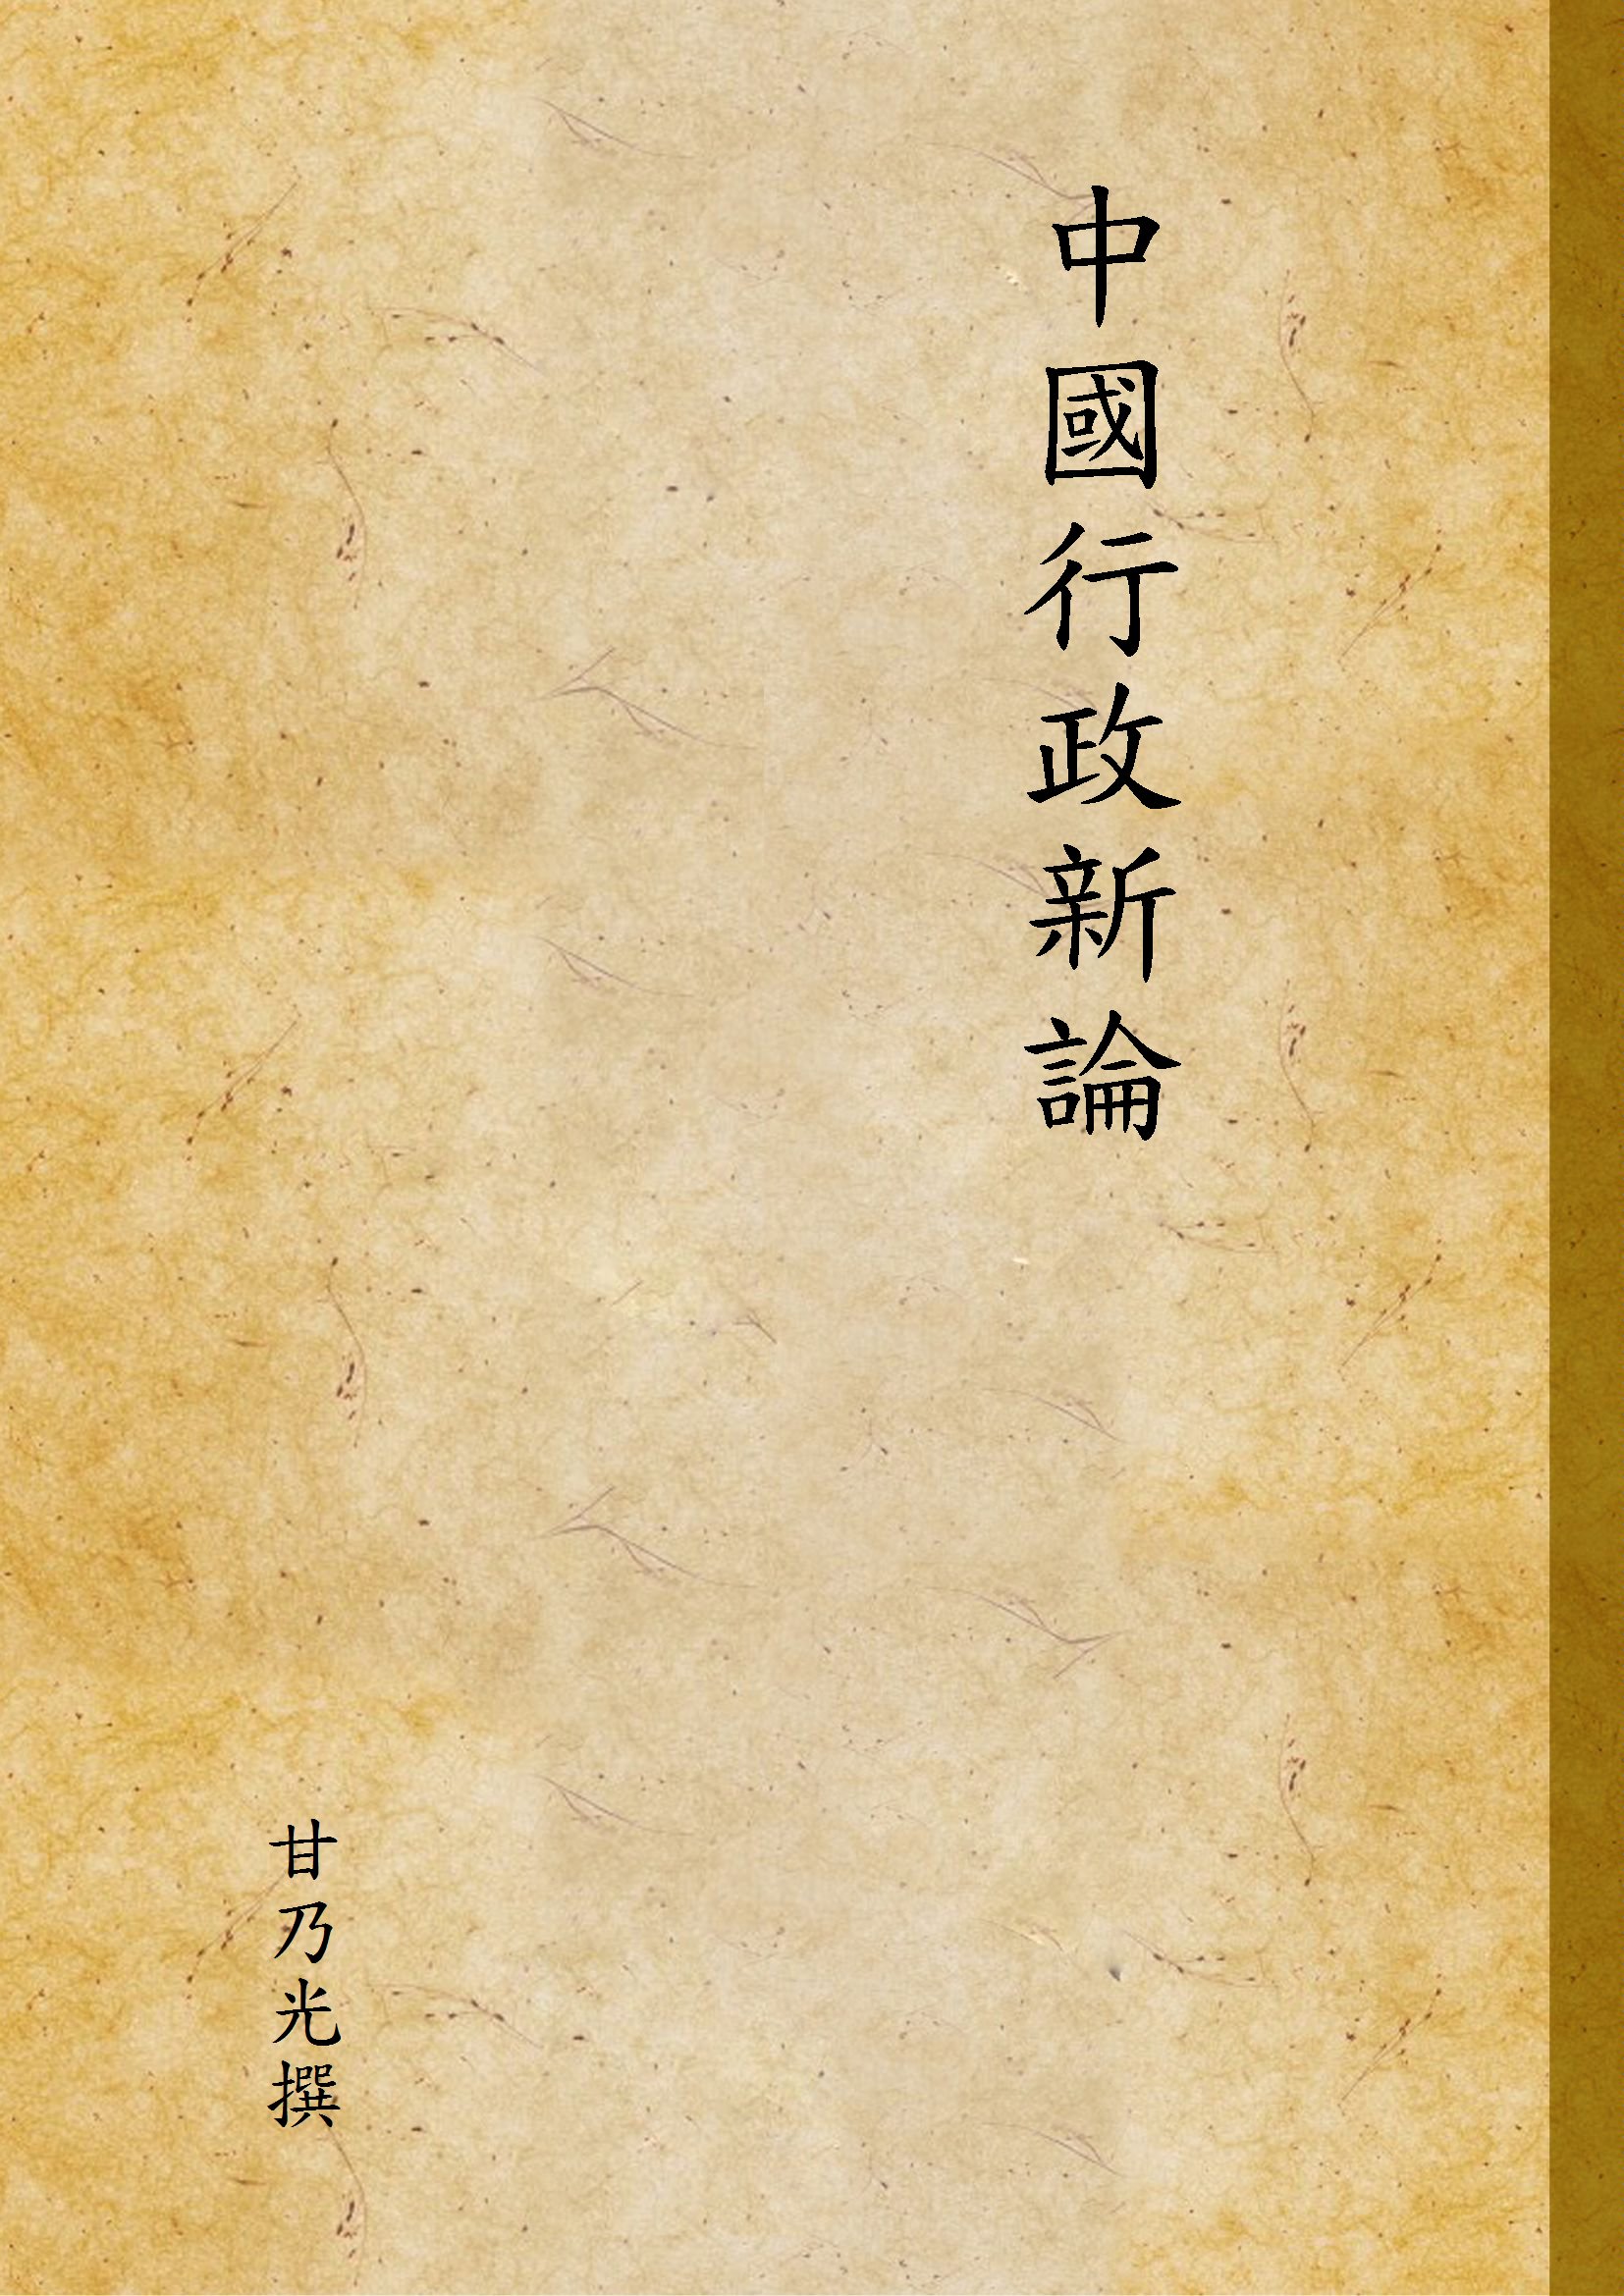 中國行政新論
甘乃光撰